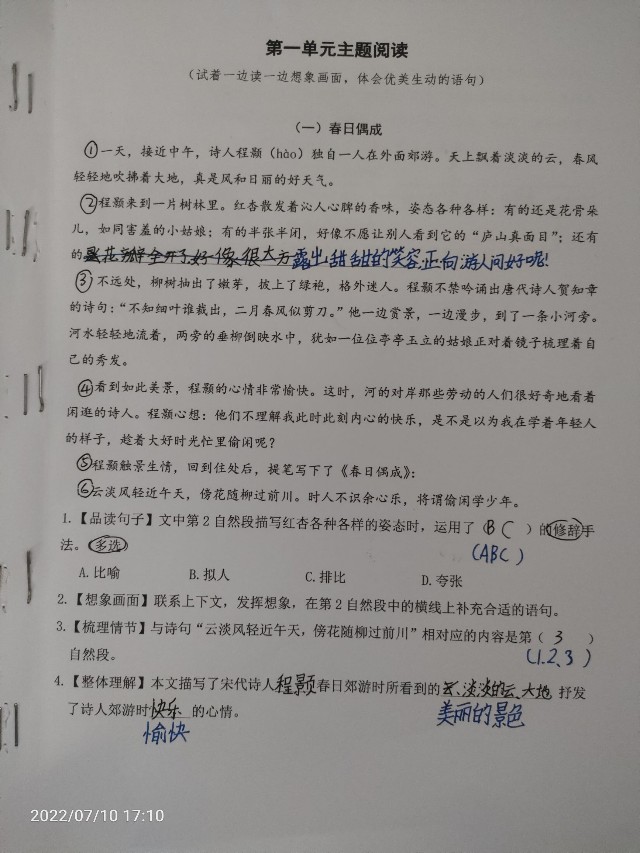 第一单元主题阅读
（试着一边读一边想象画面，体会优美生动的语句）
（一）春日偶成
①一天，接近中午，诗人程颢（hào）独自一人在外面郊游。天上飘着淡淡的云，春风
轻轻地吹拂着大地，真是风和日丽的好天气。
②程颢来到一片树林里。红杏散发着沁人心脾的香味，姿态各种各样：有的还是花骨朵
儿，如同害羞的小姑娘；有的半张半闭，好像不愿让别人看到它的“庐山真面目”；还有
的 花瓣全开了好像很大方露出甜甜的笑容，正向游人问好呢！
③不远处，柳树抽出了嫩芽，披上了绿袍，格外迷人。程颢不禁吟诵出唐代诗人贺知章
的诗句：“不知细叶谁裁出，二月春风似剪刀。”他一边赏景，一边漫步，到了一条小河旁。
河水轻轻地流着，两旁的垂柳倒映水中，犹如一位位亭亭玉立的姑娘正对着镜子梳理着自
己的秀发。
④看到如此美景，程颢的心情非常愉快。这时，河的对岸那些劳动的人们很好奇地看着
闲逛的诗人。程颢心想：他们不理解我此时此刻内心的快乐，是不是以为我在学着年轻人
的样子，趁着大好时光忙里偷闲呢？
⑤程颢触景生情，回到住处后，提笔写下了《春日偶成》：
⑥云淡风轻近午天，傍花随柳过前川。时人不识余心乐，将谓偷闲学少年。
1.【品读句子】文中第2自然段描写红杏各种各样的姿态时，运用了（BC）的修辞手
法。（多选） （ABC）
A.比喻 B.拟人 C.排比 D.夸张
2.【想象画面】联系上下文，发挥想象，在第2自然段中的横线上补充合适的语句。
3.【梳理情节】与诗句“云淡风轻近午天，傍花随柳过前川”相对应的内容是第（3）
自然段。 （1.2.3）
4.【整体理解】本文描写了宋代诗人程颢春日郊游时所看到的 淡淡的云、大地 抒发
了诗人郊游时快乐的心情。 美丽的景色
愉快
2022/07/10 17:10